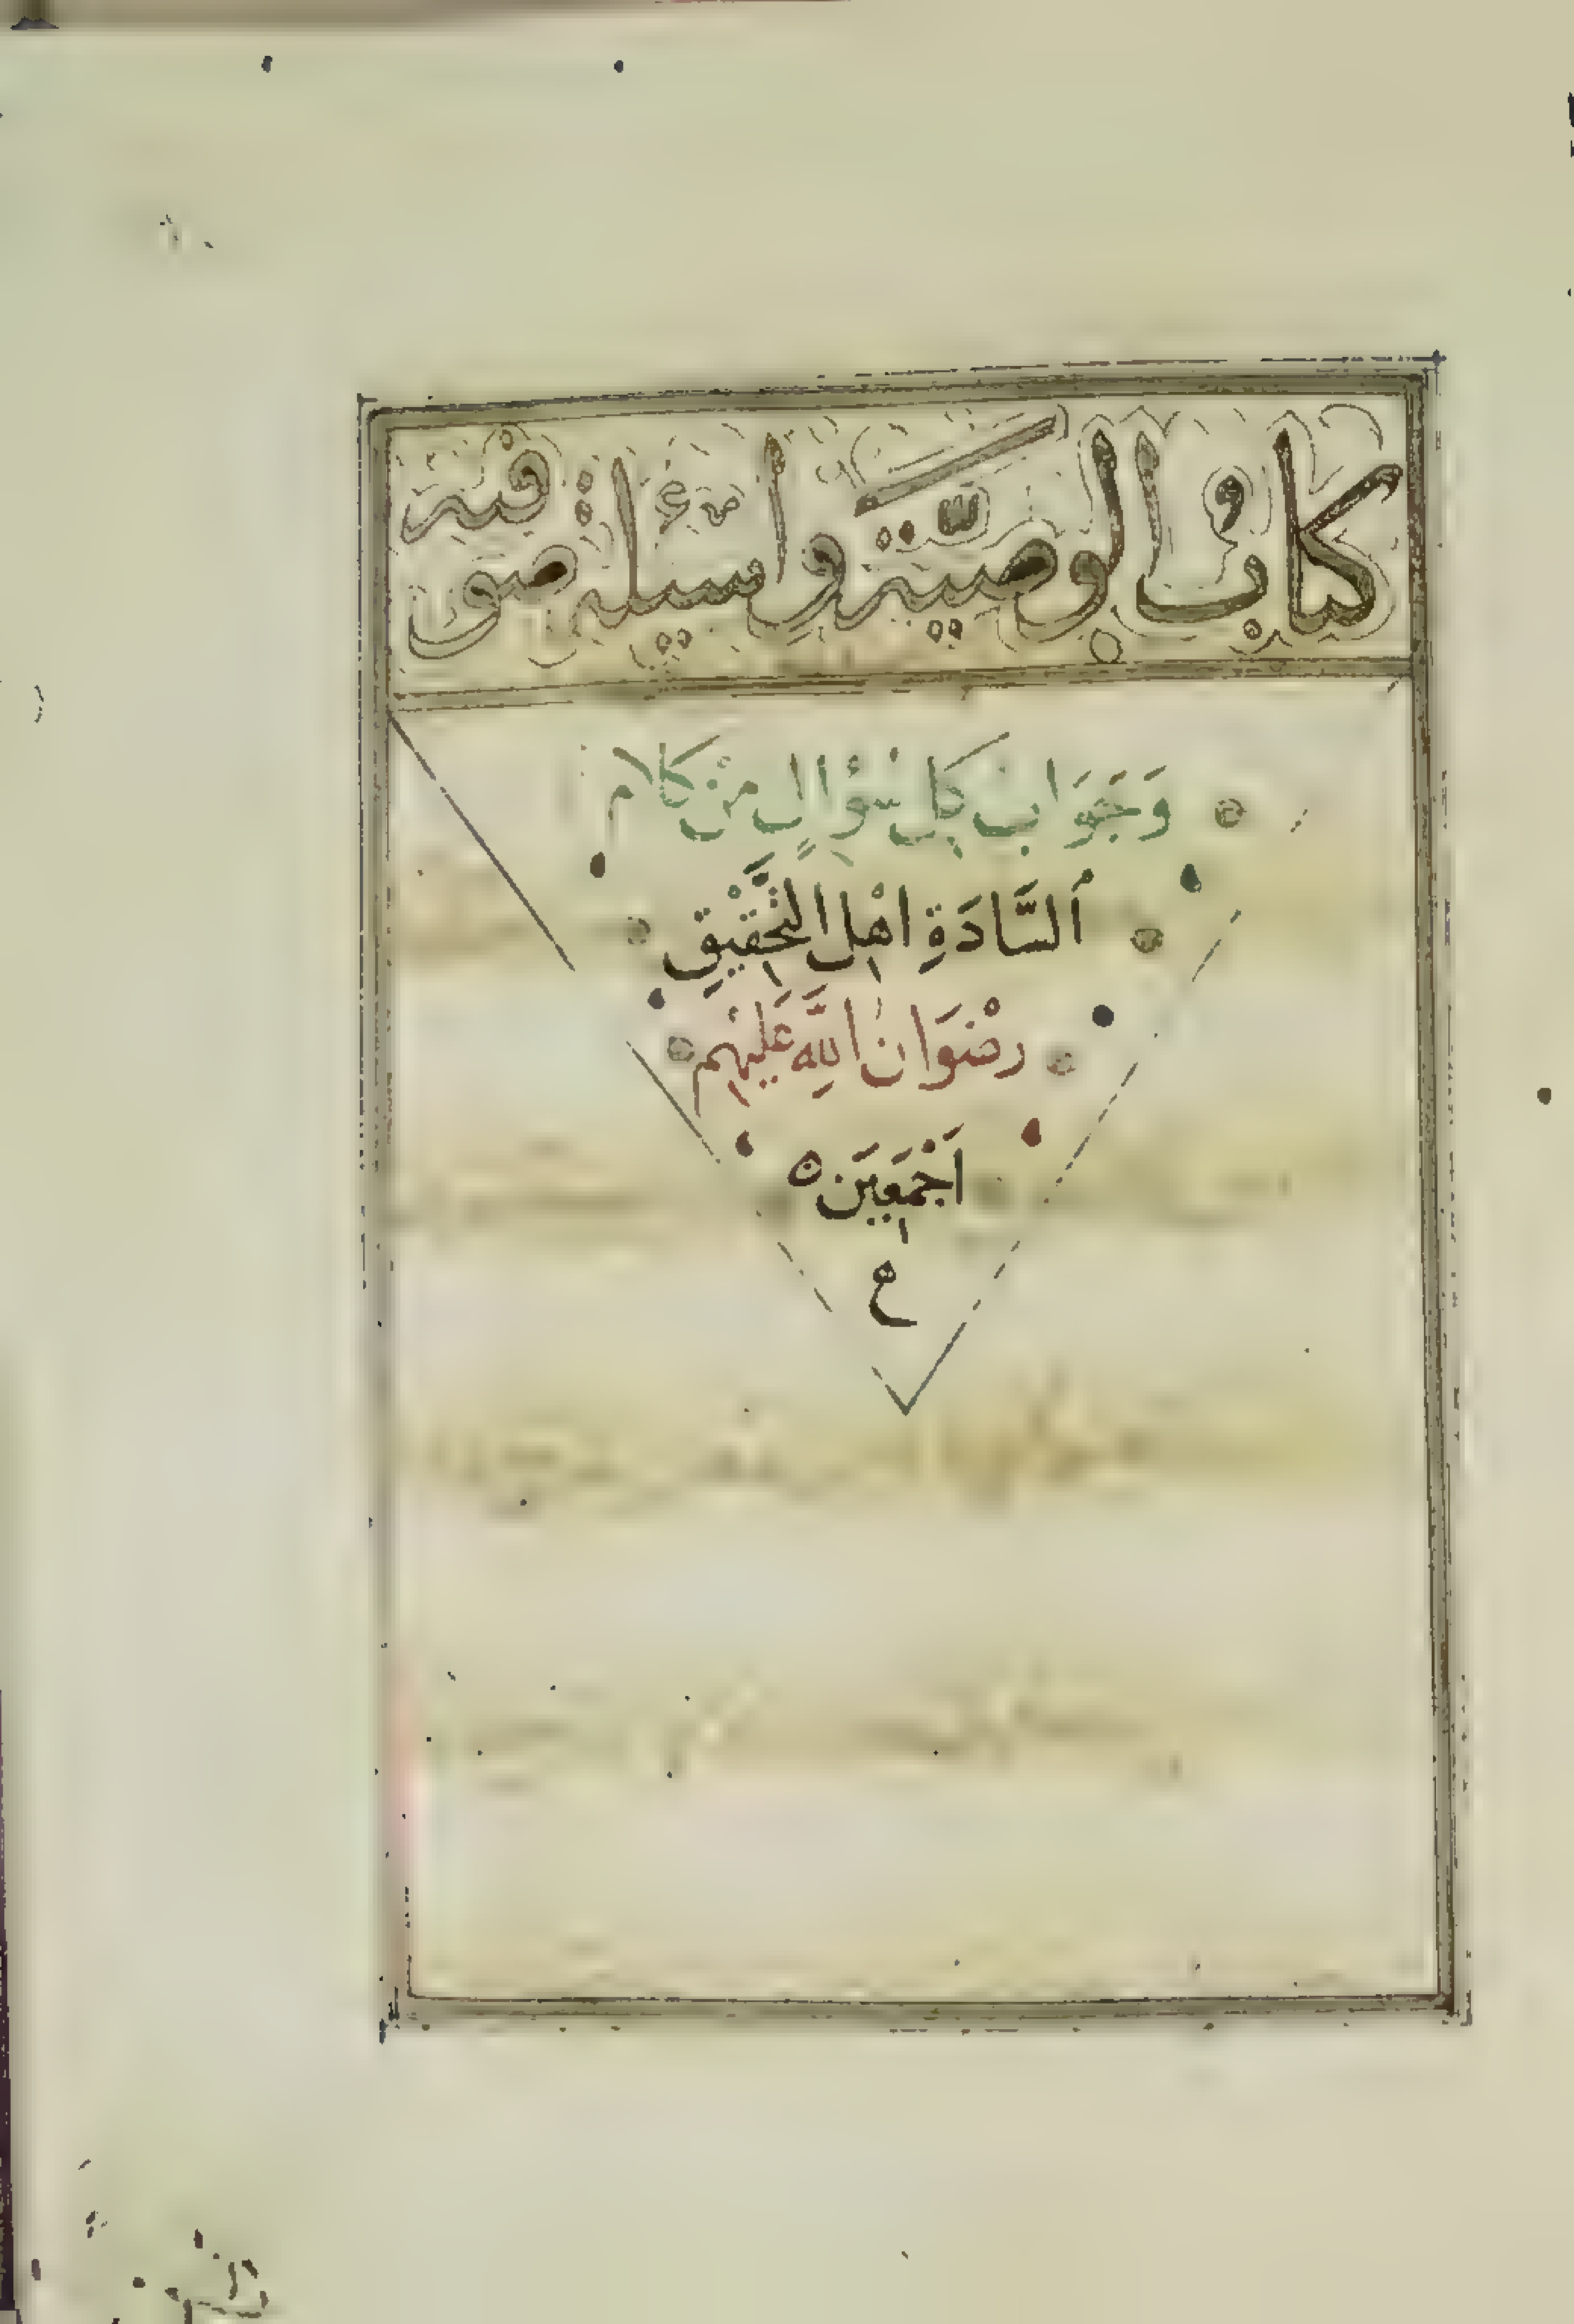 كتاب الوصية واسيلة صوفية
وَجَوَابْ كِلْ سُؤالٍ مِنْ كَلام
اَلسَّادَةِ اهْلِ التَّحْقِيْقِ
رِضْوَانُ اللَّهِ عَلَيْهِم
اَجْمَعِيَن ه